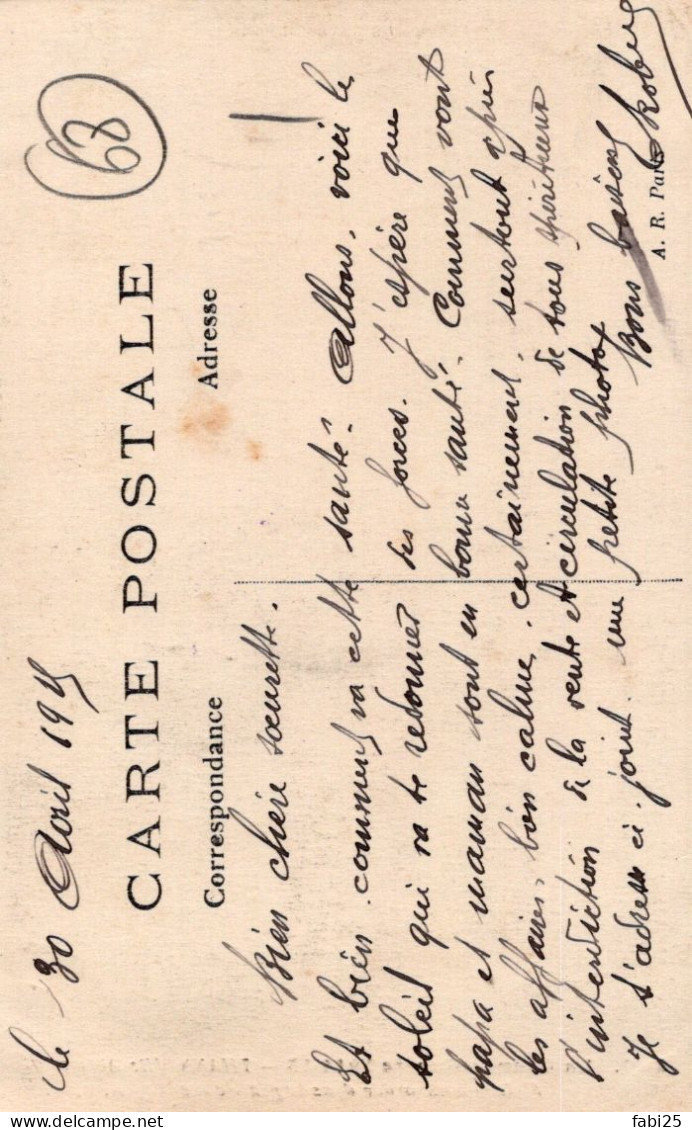 le 30 Avril 1915
68
CARTE POSTALE
Correspondance
Adresse
Bien chère sœurette.
Et bien comment va cette santé. Allons, voici le
soleil qui va te redonner des forces. J'espère que
papa et maman sont en bonne santé. Comment vont
les affaires, bien calme, certainement, surtout depuis
l'interdiction de la vente et circulation de tous spiritueux
Je t'adresse ci-joint une petite photo
Bons baisers
A. R. Paris
fabi25